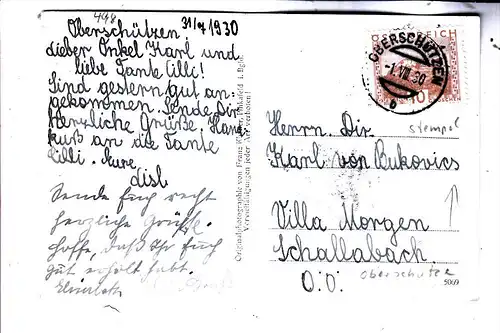 498
31/7 1930
Oberschützen
Lieber Onkel Karl und
liebe Tante Cilli!
Sind gestern gut an-
gekommen. Sende Dir
herzliche Grüße. Hand-
kuß an die Tante
Cilli. Eure
Lisl
Sende Euch recht
herzliche Grüße.
Hoffe, daß Ihr Euch
gut erholt habt.
Elisabeth
Originalphotographie von Franz
Vervielfältigungen jeder Art verboten!
ÖSTERREICH
10
GROSCHEN
OBERSCHÜTZEN
30
b
stempel
Herrn. Dir.
Karl von Bukovics
Villa Morgen
Schallabach
O.Ö.
oberschützen
5069